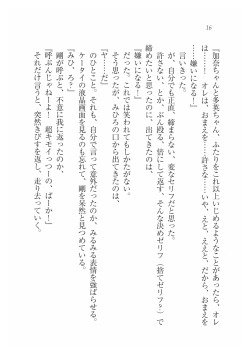 16
『加奈ちゃんと多英ちゃん、ふたりをこれ以上いじめるようなことがあったら、オレ
は……！　オレは、おまえを……許さな……いや、えと、ええと、だから、おまえを
……嫌いになる！』
言いきった。
が、自分でも正直、締まらない、変なセリフだと思った。
許さない、とか、ぶん殴る、倍にして返す、そんな決めゼリフ（捨てゼリフ？）で
締めたいと思ったのに、出てきたのは、
『嫌いになる！』
だった。これでは笑われてもしかたがない。
そう思ったが、みひろの口から出てきたのは、
『ヤ……だ』
のひとこと。それも、自分で言って意外だったのか、みるみる表情を強ばらせる。
ケータイの液晶画面を見るのも忘れて、剛を呆然と見つめている。
『みひ、ろ？』
剛が呼ぶと、不意に我に返ったのか、
『呼ぶんじゃねーよ！　超キモイっつーの、ばーか！』
それだけ言うと、突然きびすを返し、走り去っていく。